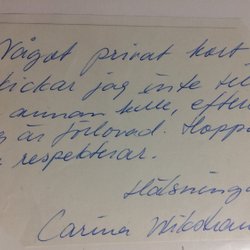 Något privat kort
skickar jag inte till
annan kille, efter
är förlovad. Hoppas
respekterar.
Hälsningar
Carina